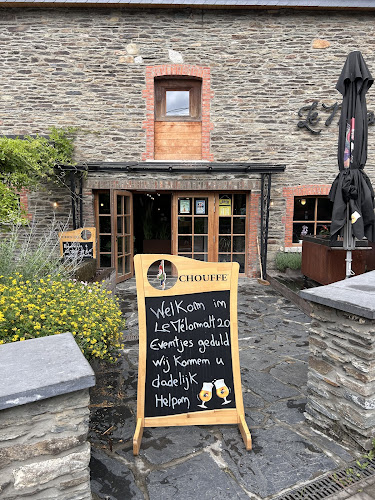 CHOUFFE
Welkom im
Le Mélomalt 2.0
Evemtjes geduld
wij komem u
dadelijk
Helpem